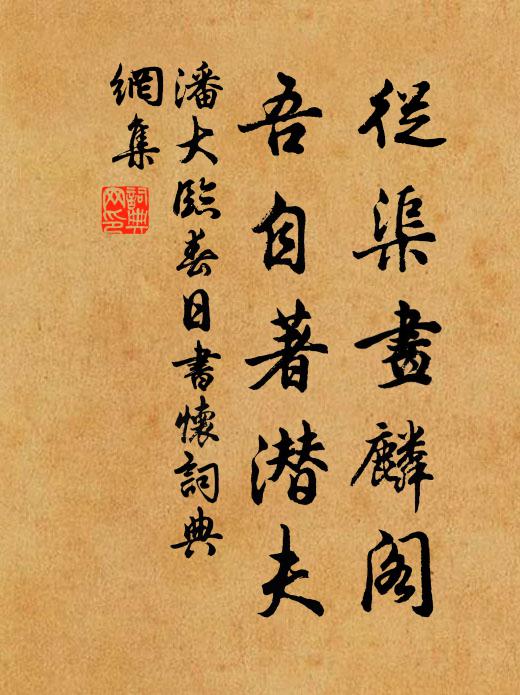 從渠畫麟閣
吾自著潜夫
潘大臨春日書懷詞典
網集
詞典網印